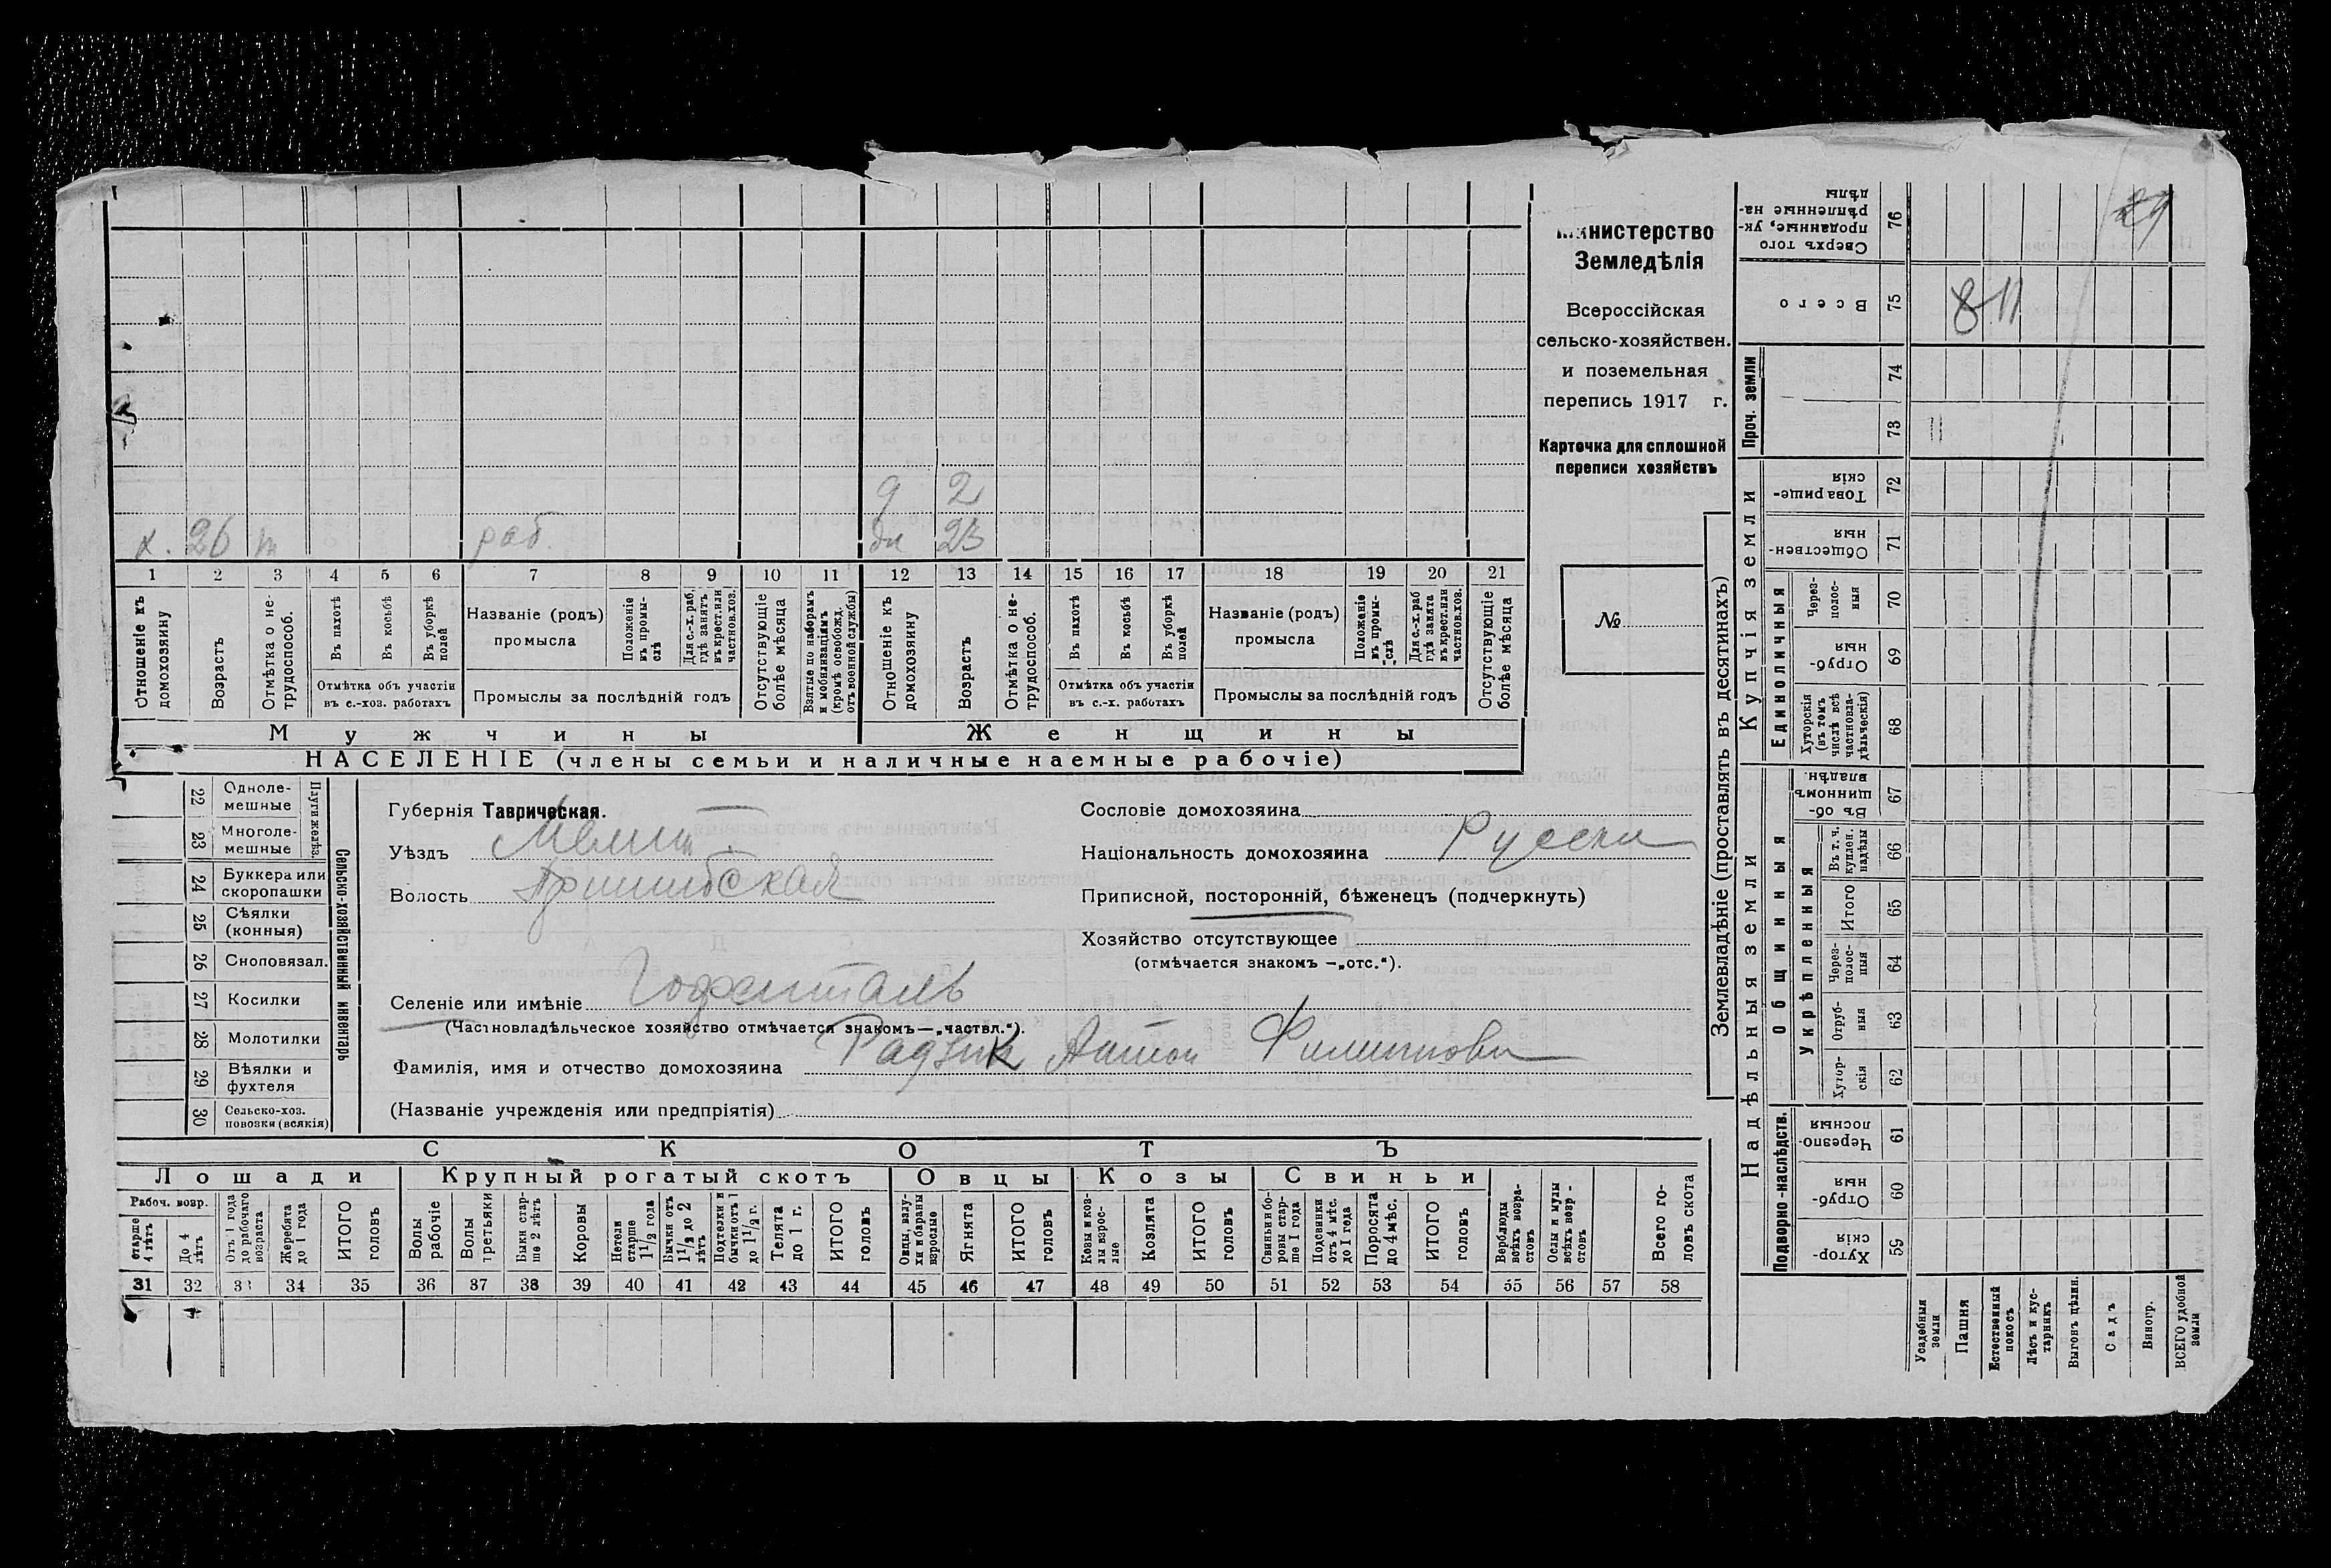 29
Министерство
Земледѣлія
Всероссійская
сельско-хозяйствен.
и поземельная
перепись 1917 г.
Карточка для сплошной
переписи хозяйствъ
№
д 2
х. 26 т раб. дч 23
1 2 3 4 5 6 7 8 9 10 11 12 13 14 15 16 17 18 19 20 21
Отношеніе къ домохозяину
Возрастъ
Отмѣтка о нетрудоспособ.
Въ пахотѣ
Въ косьбѣ
Въ уборкѣ полей
Отмѣтка объ участіи въ с.-хоз. работахъ
Названіе (родъ) промысла
Положеніе въ промыслѣ
Для с.-х. раб. гдѣ занятъ въ крест. или частнов. хоз.
Промыслы за послѣдній годъ
Отсутствующіе болѣе мѣсяца
Взятые по наборамъ и мобилизаціямъ (кромѣ освобожд. отъ военной службы)
Отношеніе къ домохозяину
Возрастъ
Отмѣтка о нетрудоспособ.
Въ пахотѣ
Въ косьбѣ
Въ уборкѣ полей
Отмѣтка объ участіи въ с.-х. работахъ
Названіе (родъ) промысла
Положеніе въ промыслѣ
Для с.-х. раб гдѣ занята въ крест. или частнов. хоз.
Промыслы за послѣдній годъ
Отсутствующіе болѣе мѣсяца
Мужчины Женщины
НАСЕЛЕНІЕ (члены семьи и наличные наемные рабочіе)
Сельско-хозяйственный инвентарь
Плуги желѣз.
22 Однолемешные
23 Многолемешные
24 Буккера или скоропашки
25 Сѣялки (конныя)
26 Сноповязал.
27 Косилки
28 Молотилки
29 Вѣялки и фухтеля
30 Сельско-хоз. повозки (всякія)
Губернія Таврическая.
Уѣздъ Мелит.
Волость Пришибская
Селеніе или имѣніе Гофенталь
(Частновладѣльческое хозяйство отмѣчается знакомъ—„частвл.“).
Фамилія, имя и отчество домохозяина Антон Филиппович
(Названіе учрежденія или предпріятія)
Сословіе домохозяина
Національность домохозяина Русски
Приписной, посторонній, бѣженецъ (подчеркнуть)
Хозяйство отсутствующее
(отмѣчается знакомъ —„отс.“).
СКОТЪ
Лошади Крупный рогатый скотъ Овцы Козы Свиньи
Рабоч. возр.
старше 4 лѣтъ
До 4 лѣтъ
Отъ 1 года до рабочаго возраста
Жеребята до 1 года
ИТОГО головъ
Волы рабочіе
Волы третьяки
Быки старше 2 лѣтъ
Коровы
Нетели старше 1½ года
Бычки отъ 1½ до 2 лѣтъ
Подтелки и бычки отъ 1 до 1½ г.
Телята до 1 г.
ИТОГО головъ
Овцы, валухи и бараны взрослые
Ягнята
ИТОГО головъ
Козы и козлы взрослые
Козлята
ИТОГО головъ
Свиньи и боровы старше 1 года
Подсвинки отъ 4 мѣс. до 1 года
Поросята до 4 мѣс.
ИТОГО головъ
Верблюды всѣхъ возрастовъ
Ослы и мулы всѣхъ возр-стовъ
Всего головъ скота
31 32 33 34 35 36 37 38 39 40 41 42 43 44 45 46 47 48 49 50 51 52 53 54 55 56 57 58
Землевладѣніе (проставлять въ десятинахъ)
Надѣльныя земли Купчія земли Проч. земли
Подворно-наслѣдств. Общинныя Единоличныя
Укрѣпленныя
76 Сверхъ того проданные, укрѣпленные надѣлы
75 Всего 8 11
74
73 11
72 Товарищескія
71 Общественныя
70 Черезполосныя
69 Отрубныя
68 Хуторскія (въ томъ числѣ всѣ частновладѣльческія)
67 Въ общинномъ владѣн.
66 Въ т. ч. куплен. надѣлы
65 Итого
64 Черезполосныя
63 Отрубныя
62 Хуторскія
61 Черезполосныя
60 Отрубныя
59 Хуторскія
Усадебныя земли
Пашня
Естественный покосъ
Лѣсъ и кустарникъ
Выгонъ цѣлин.
Садъ
Виногр.
ВСЕГО удобной земли